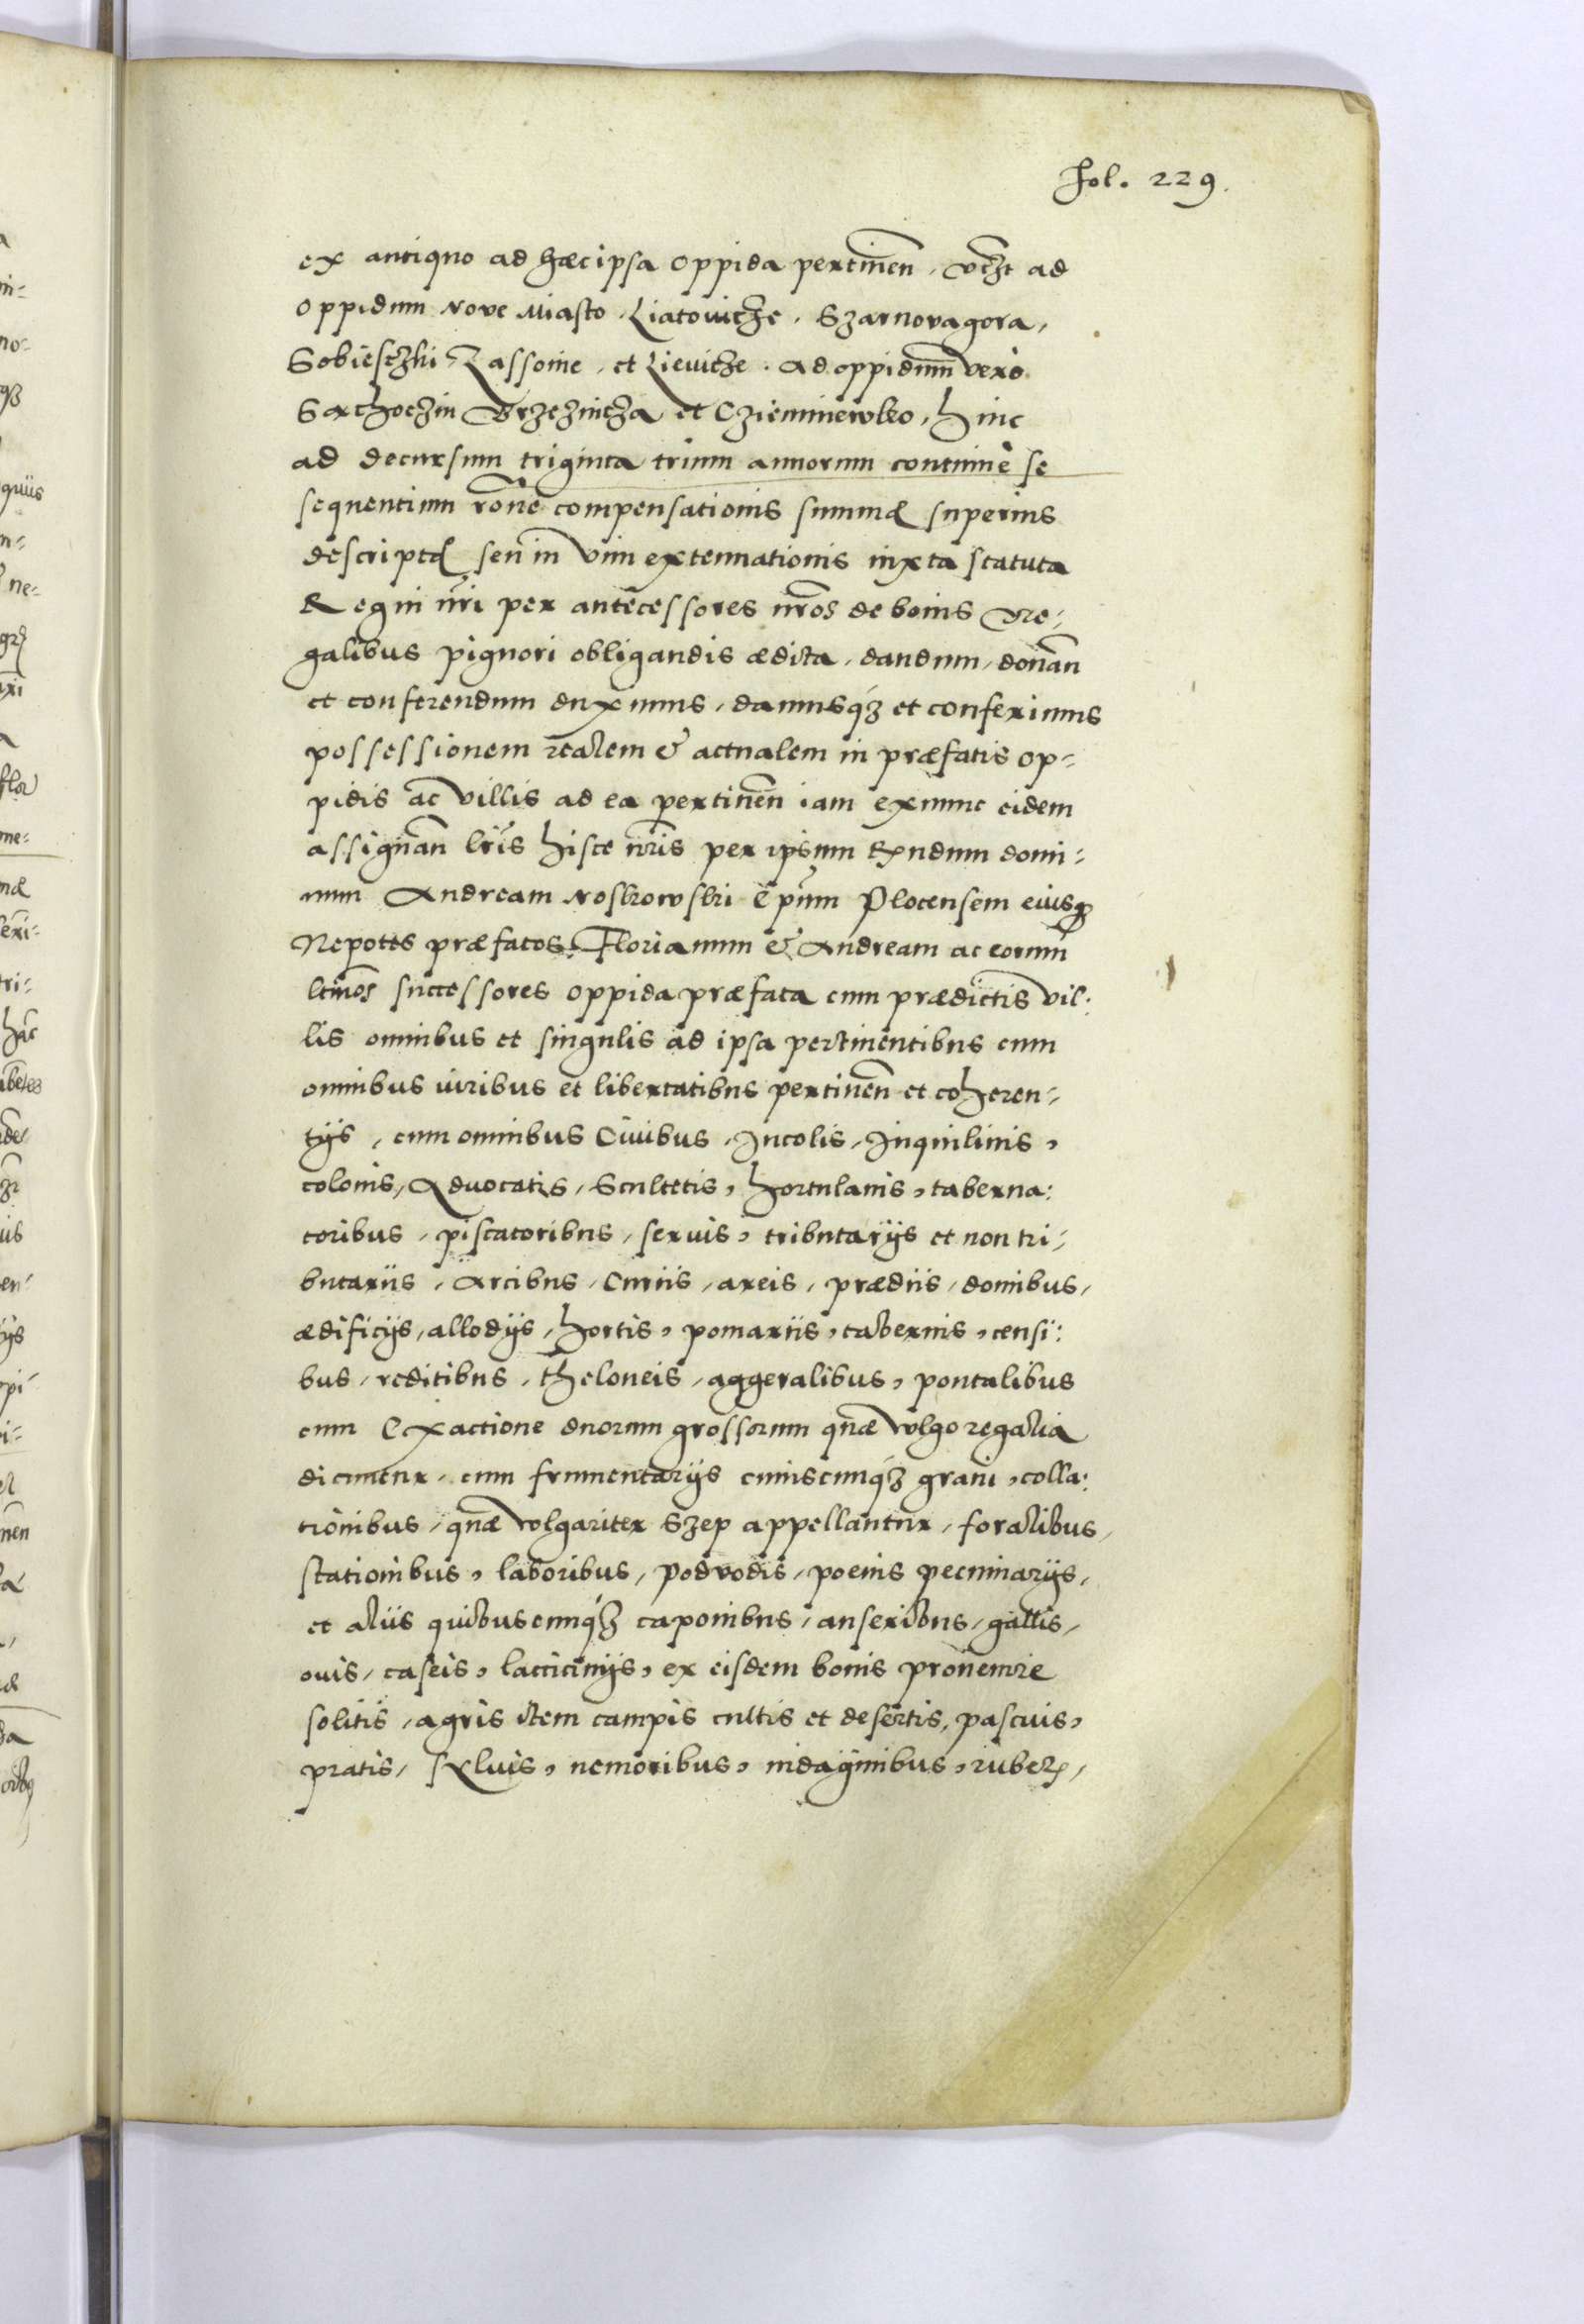 Fol. 229.
ex antiquo ad hæc ipsa oppida pertinen̄, vc̄zt ad
oppidum Nove Miasto, Liatowicze, Szarnovagora,
Sobiesczki, Zassoine, et Lieuicze. Ad oppidum̄ verò
Sochoczin Brzezincza et Cziemniewko, hinc
ad decursum triginta trium annorum continuè se
sequentium rōne compensationis summæ superius
descriptæ seu in vim extenuationis iuxta statuta
Regni nr̄i per antecessores nr̄os de bonis Re-
galibus pignori obligandis ædita, dandum, donan̄
et conferendum duximus, damusq́3 et conferimus
possessionem realem & actualem in præfatis op-
pidis ac villis ad ea pertinen̄ iam exnunc eidem
assignan̄ lr̄is hisce nr̄is per ipsum Rndum domi-
num Andream Noskowski Ep̄um Plocensem eiusq3
Nepotes præfatos, Florianum & Andream ac eorum
ltimos successores oppida præfata cum prædictis vil:
lis omnibus et singulis ad ipsa pertinentibus cum
omnibus iuribus et libertatibus pertinen̄ et coheren-
tijs, cum omnibus Ciuibus, Incolis, Inquilinis,
colonis, Advocatis, Scultetis, hortulanis, taberna:
toribus, piscatoribus, seruis, tributarijs et non tri-
butariis, Arcibus, Curiis, areis, prædiis, domibus,
ædificijs, allodijs, hortis, pomariis, tabernis, censi:
bus, reditibus, theloneis, aggeralibus, pontalibus
cum Exactione duorum grossorum quæ volgo regalia
dicuntur, cum frumentarijs cuiuscunq́3 grani, colla:
tionibus, quæ volgariter Szep appellantur, foralibus,
stationibus, laboribus, podvodis, poenis pecuniarijs,
et aliis quibuscunq́3 caponibus, anseribus, gallis,
ouis, caseis, lacticinijs, ex eisdem bonis prouenire
solitis, agris item campis cultis et desertis, pascuis,
pratis, sÿluis, nemoribus, indaginibus, rubet,